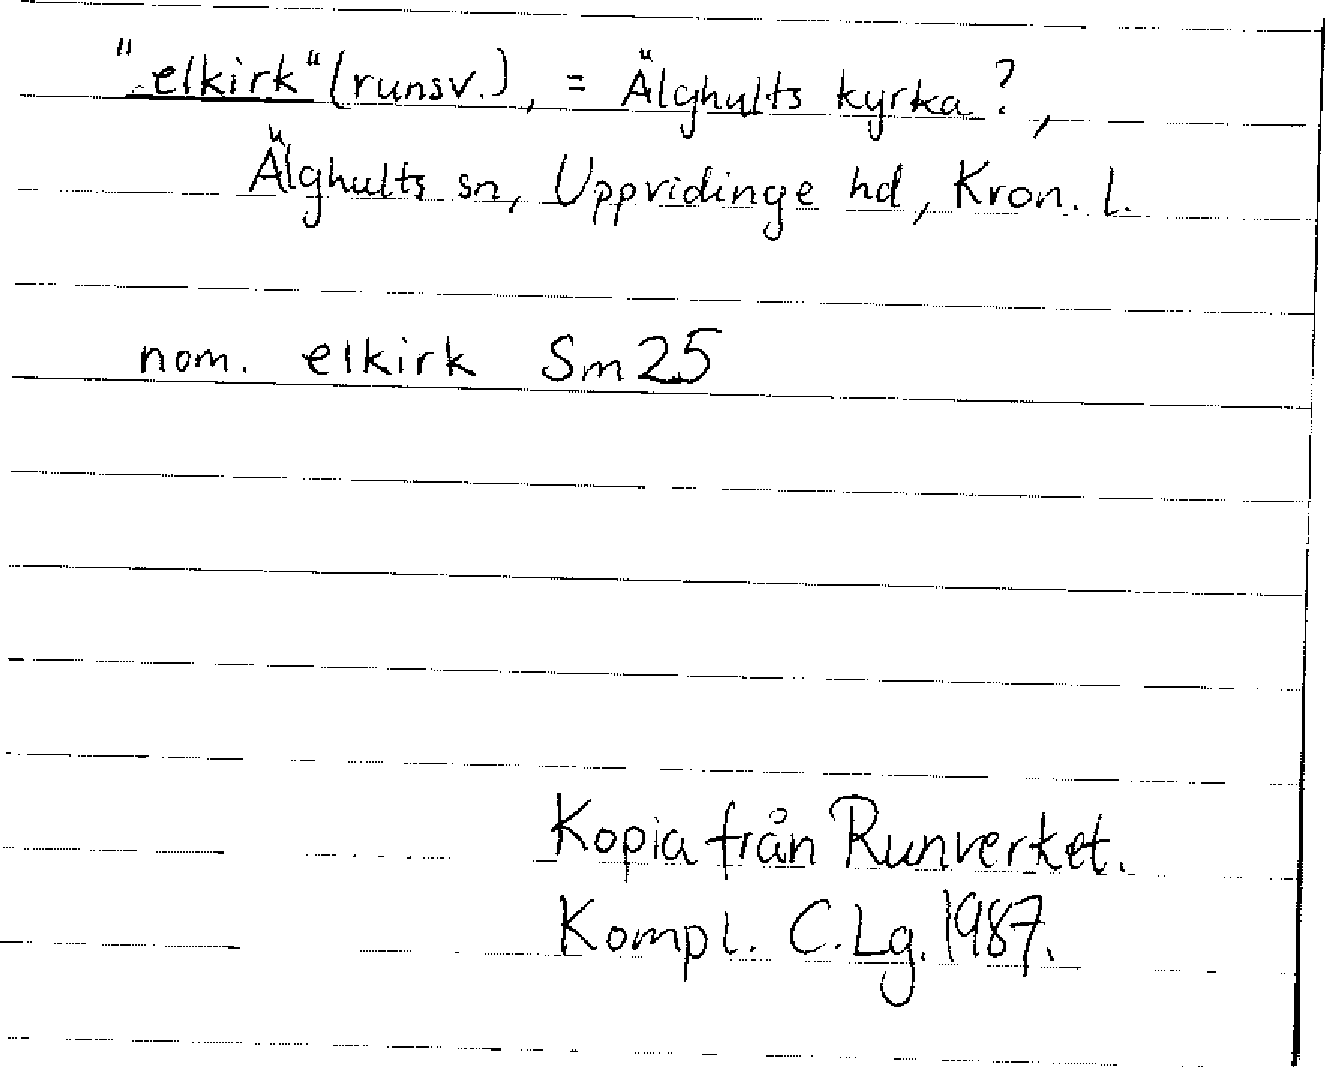 "elkirk" (runsv.), = Älghults kyrka?,
Älghults sn, Uppvidinge hd, Kron. l.
nom. elkirk Sm 25
Kopia från Runverket.
Kompl. C.Lg. 1987.